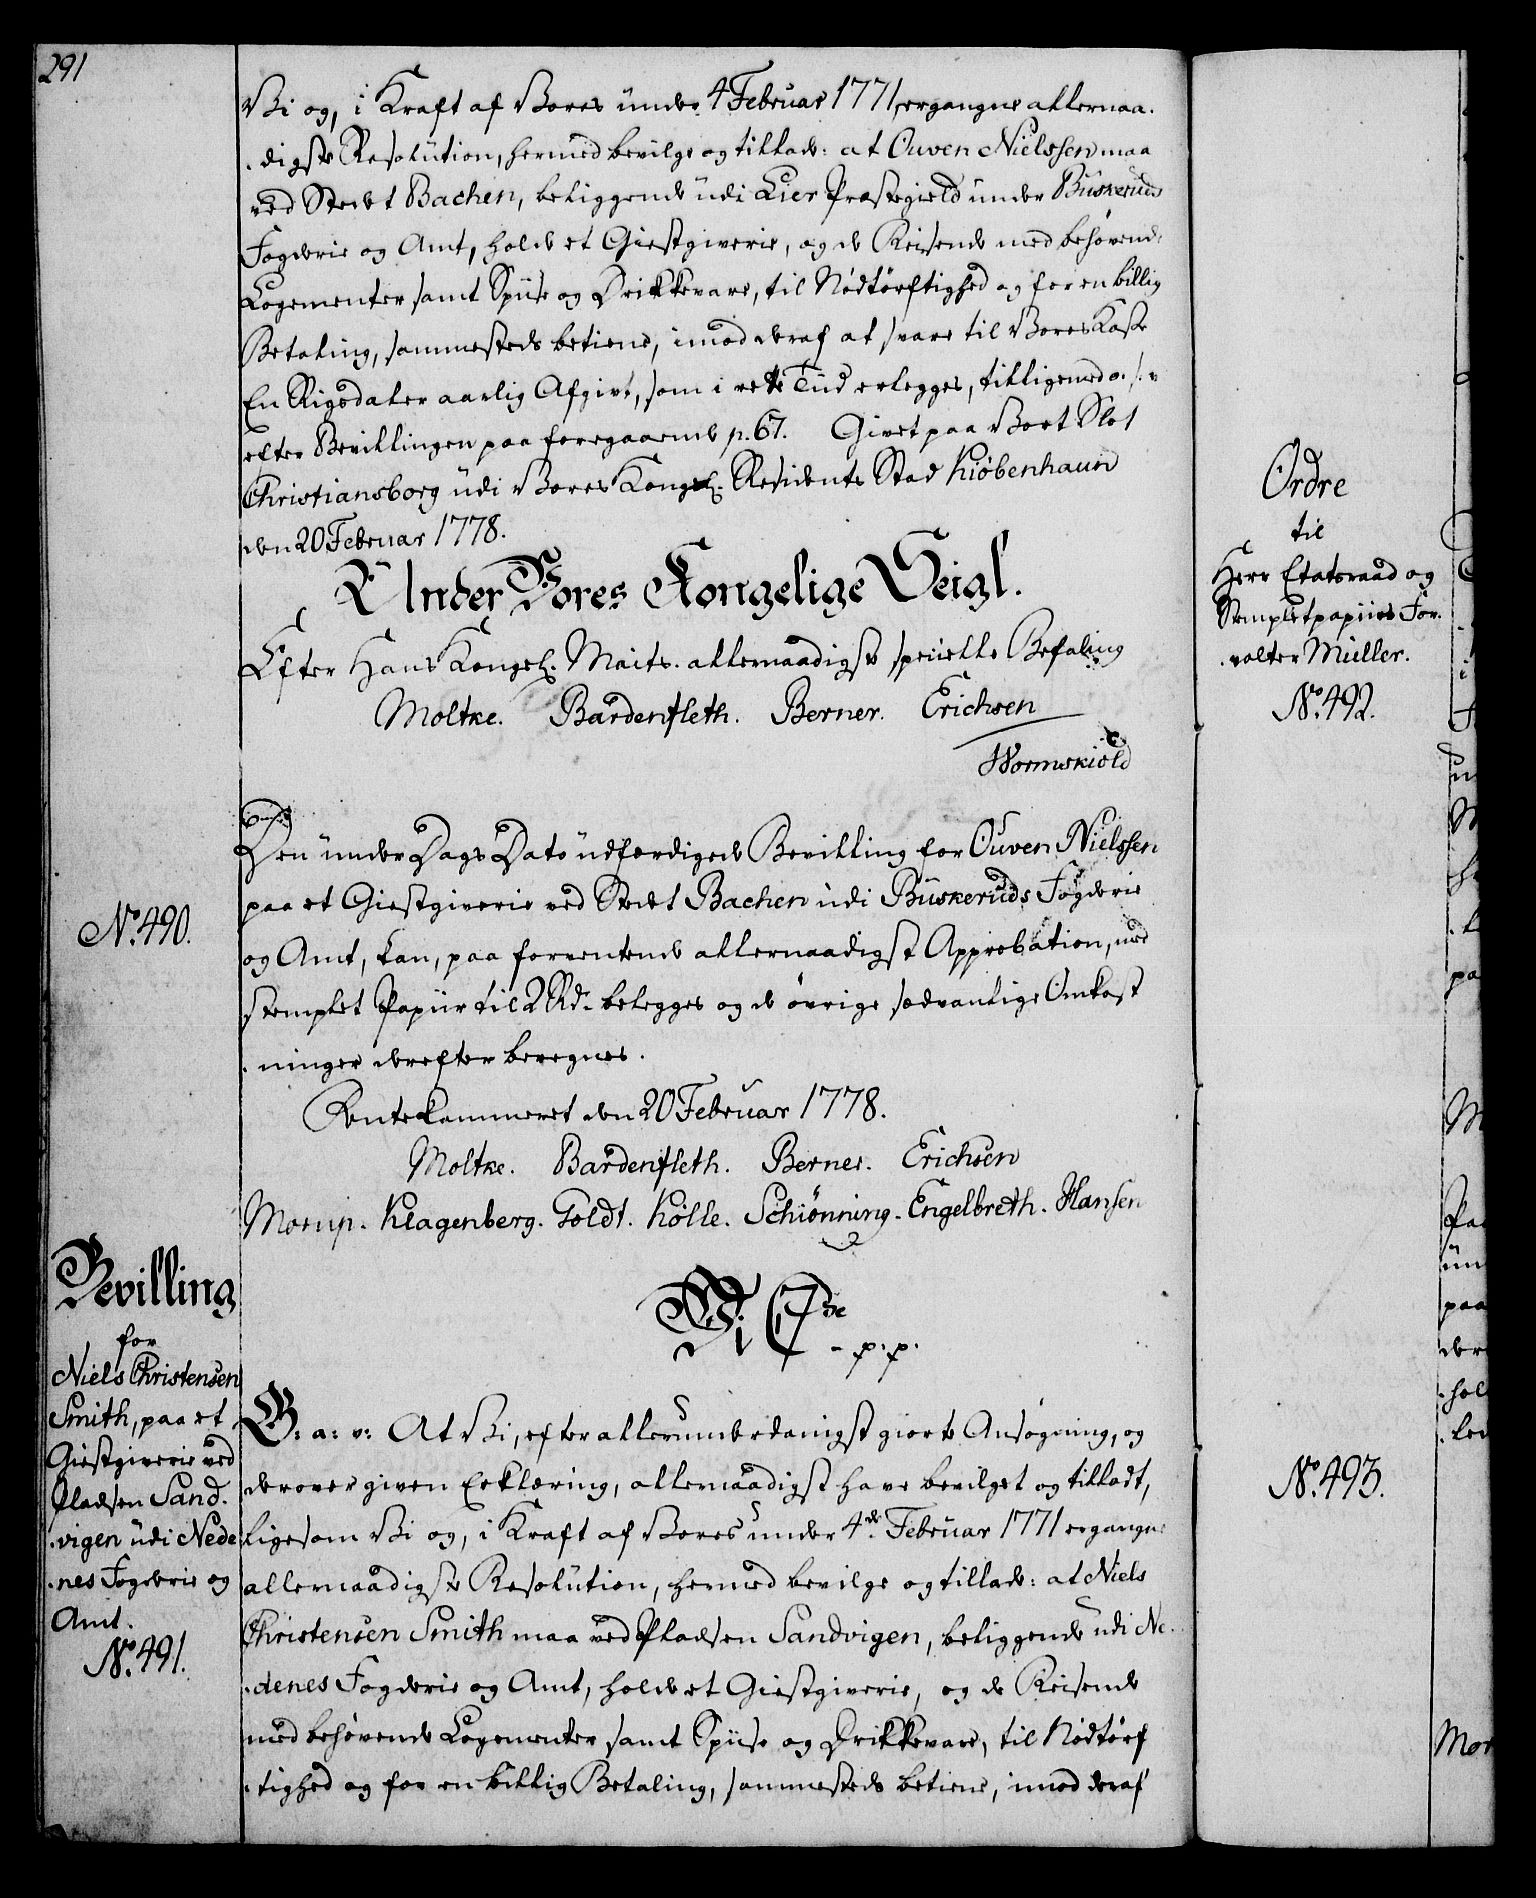 291
Vi og, i Kraft af Vores under 4 Februar 1771, ergangne allernaa-
-digste Resolution, hermed bevilge og tillade: at Ouven Nielssen maa
ved Stedet Bachen, beliggende udi Lier Præstegield under Buskeruds
Fogderie og Amt, holde et Giestgiverie, og de Reisende med behøvende
Logementer samt Spiise og Drikkevare, til Nødtørftighed og for en billig
Betaling, sammesteds betiene, imod deraf at svare til Vores Kasse
En Rigsdaler aarlig Afgivt, som i rette Tiid erlegges, tilligemed o. s. v
efter Bevillingen paa foregaaende p. 67. Givet paa Vort Slot
Christiansborg udi Vores Kongel. Residents Stad Kiöbenhaun
den 20 Februar 1778.
Under Vores Kongelige Seigl.
Efter Hans Kongel. Maits. allernaadigste specielle Befaling
Moltke. Bardenfleth. Berner. Erichsen
Wormskiold
No. 490.
Den under Dags Dato udfærdigede Bevilling for Ouven Nielssen
paa et Giestgiverie ved Stedet Bachen udi Buskeruds Fogderie
og Amt, kan, paa forventende allernaadigst Approbation, med
stemplet Papiir til 2 Rd. belegges og de øvrige sædvanlige Omkost
-ninger derefter beregnes.
Rentekammeret den 20 Februar 1778.
Moltke. Bardenfleth. Berner. Erichsen
Morup. Klagenberg. Toldt. Kölle. Schiönning. Engelbreth. Hansen
Bevilling
for
Niels Christensen
Smith, paa et
Giestgiverie ved
Pladsen Sand-
-vigen udi Nede
-nes Fogderie og
Amt.
No. 491.
Vi C 7de p. p.
G: a: v: At Vi, efter allerunderdanigst giorte Ansøgning, og
derover given Erklæring, allernaadigst have bevilget og tilladt,
ligesom Vi og, i Kraft af Vores under 4de Februar 1771 ergangne
allernaadigste Resolution, hermed bevilge og tillade: at Niels
Christensen Smith maa ved Pladsen Sandvigen, beliggende udi Ne-
-denes Fogderie og Amt, holde et Giestgiverie, og de Reisende
med behøvende Logementer samt Spiise og Drikkevare, til Nødtørf
-tighed og for en billig Betaling, sammesteds betiene, imod deraf
Ordre
til
Herr Etatsraad og
Stempletpapiirs For-
-valter Müller.
No. 492.
No. 493.